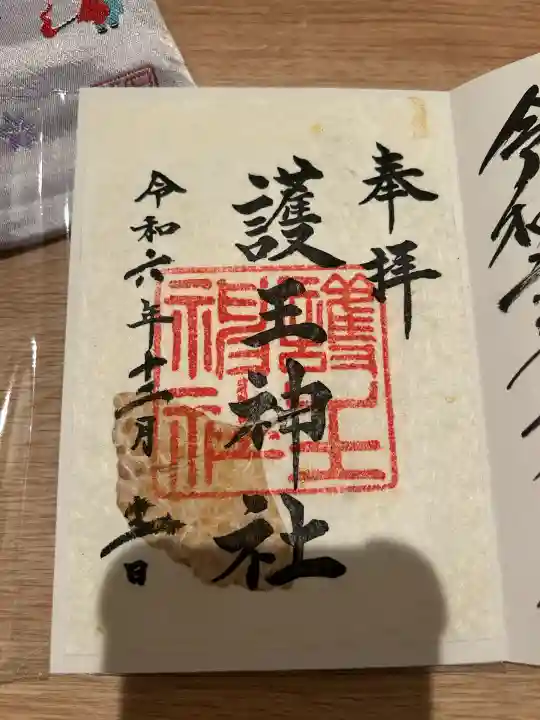 奉拝
護王神社
護王神社
令和六年十二月
日
令和